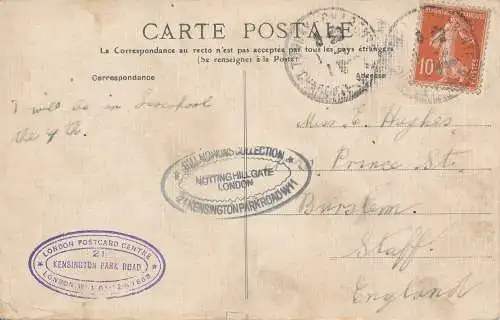 CARTE POSTALE
La Correspondance au recto n'est pas acceptée par tous les pays étrangers
(Se renseigner à la Poste)
Correspondance
Adresse
10
I will be in Liverpool
the 4th.
Miss C Hughes
Prince St.
Burslem
Staff.
England
COLLECTION
NOTTING HILL GATE
LONDON
21 KENSINGTON PARK ROAD W11
LONDON POSTCARD CENTRE
21
KENSINGTON PARK ROAD
LONDON W.11